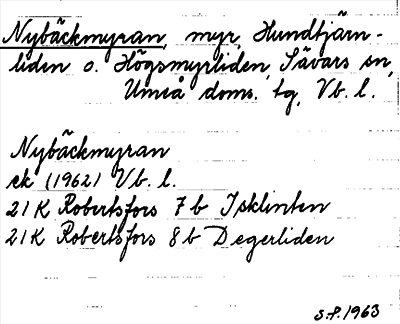 Nybäckmyran, myr, Hundtjärn-
liden o. Högsmyrliden, Sävars sn,
Umeå doms. tg, Vb. l.
Nybäckmyran
ek (1962) Vb. l.
21K Robertsfors 7b Isklinten
21K Robertsfors 8b Degerliden
S.P. 1963